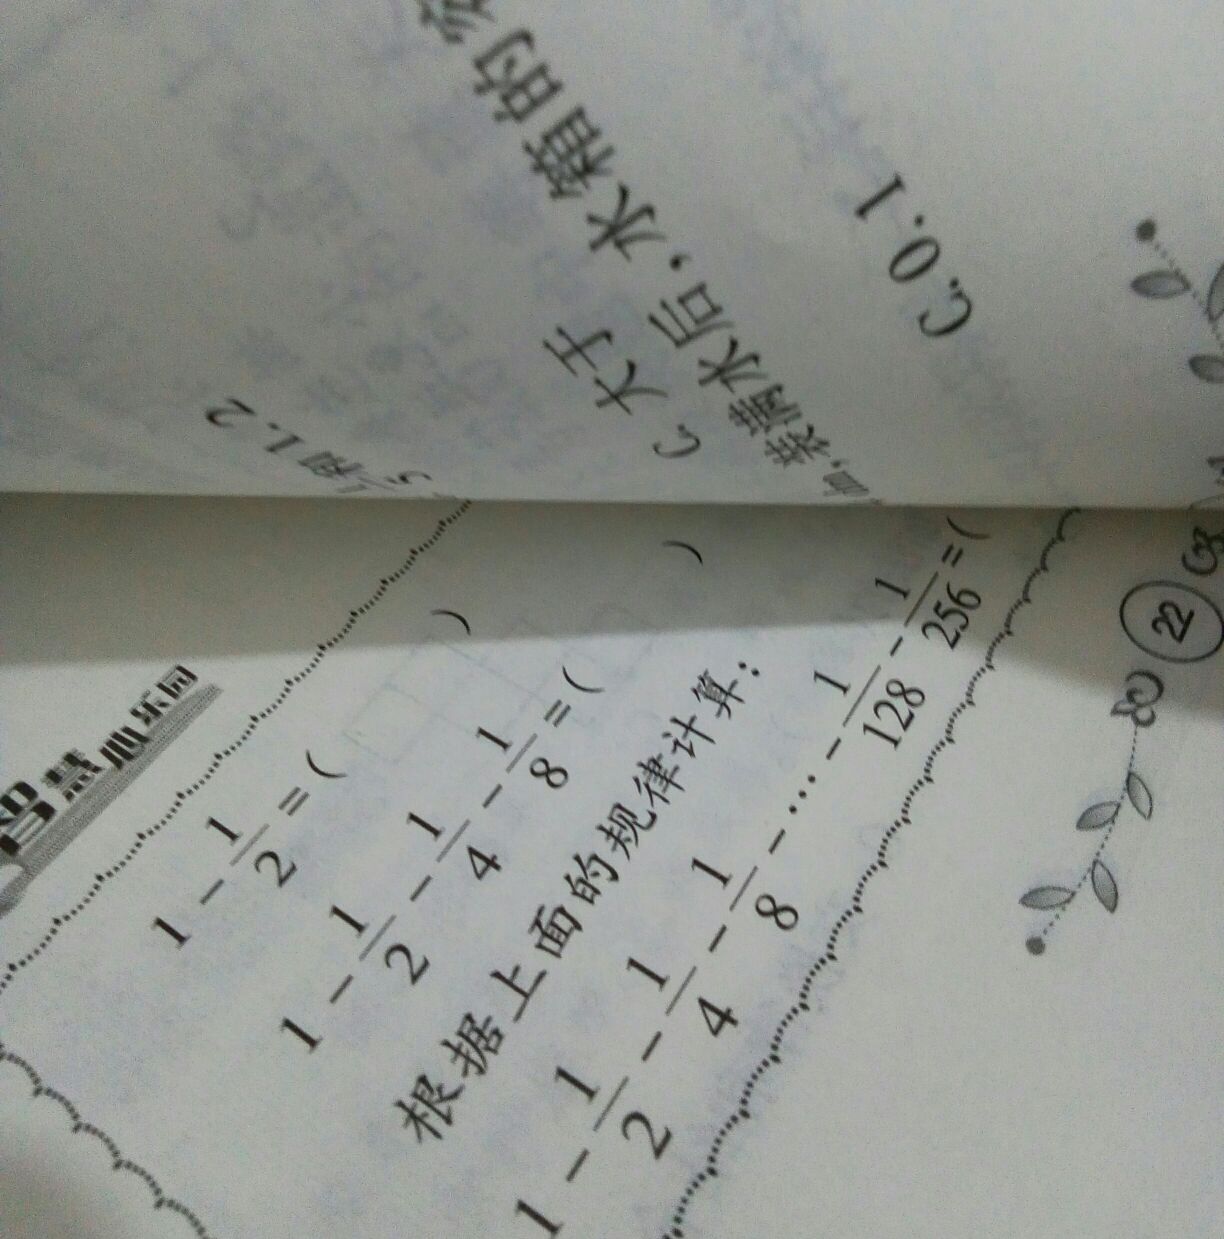 水箱的
C. 大于
装满水后,
C. 0.1
和1.2
智慧心乐园
1 - 1/2 = ( )
1 - 1/2 - 1/4 - 1/8 = ( )
根据上面的规律计算:
1 - 1/2 - 1/4 - 1/8 - … - 1/128 - 1/256 = (
22